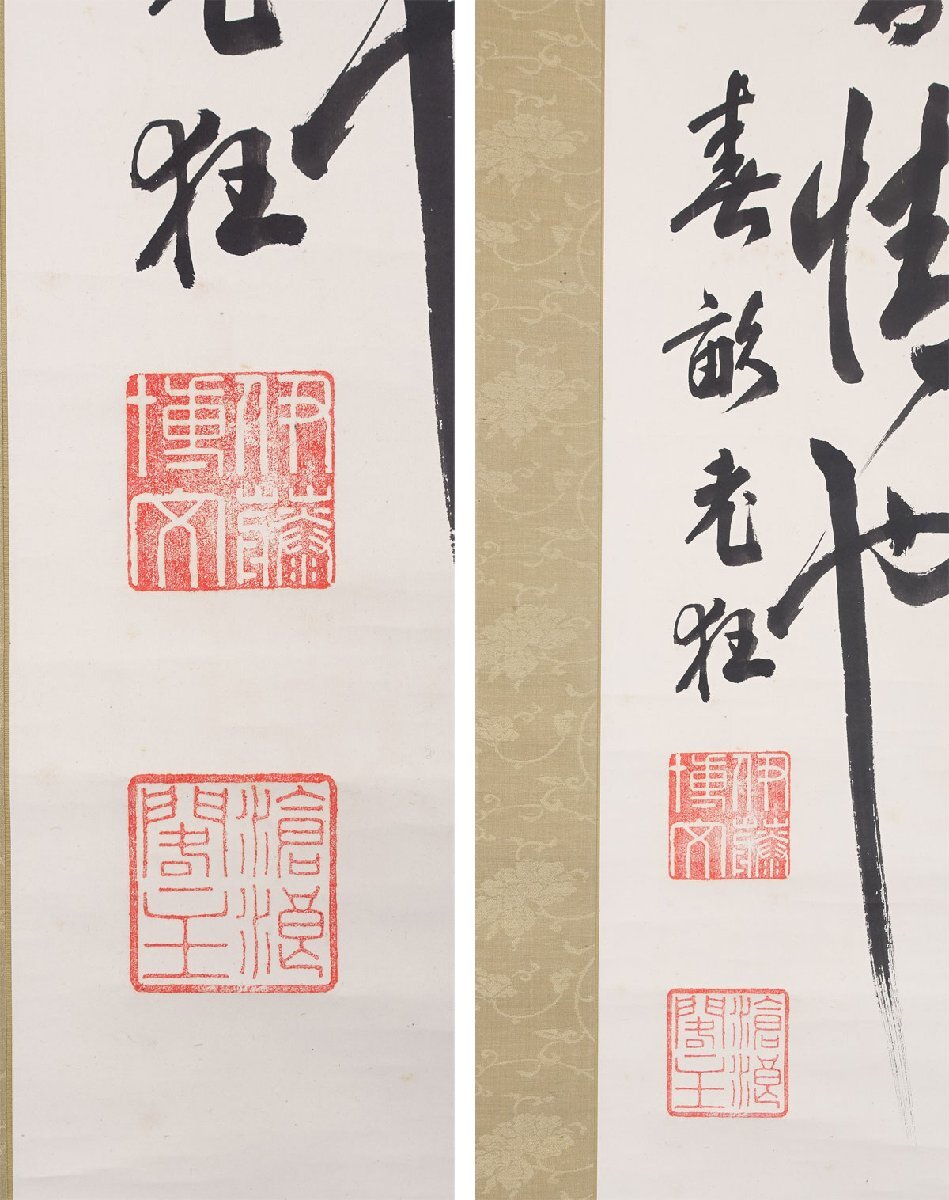 狂
伊藤
博文
滄浪
閣主
春畝老狂
伊藤
博文
滄浪
閣主